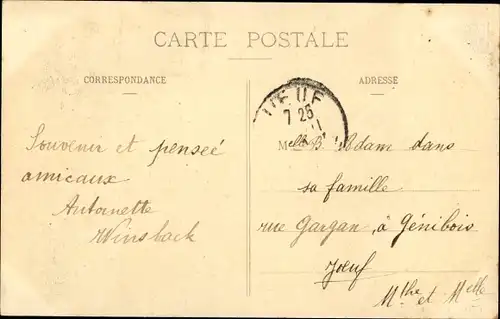 CARTE POSTALE
CORRESPONDANCE
ADRESSE
7 25
Souvenir et penseé
amicaux
Antoinette
Winsback
Melle B. Adam dans
sa famille
rue Gargan, à Génibois
Jœuf
Mthe et Melle